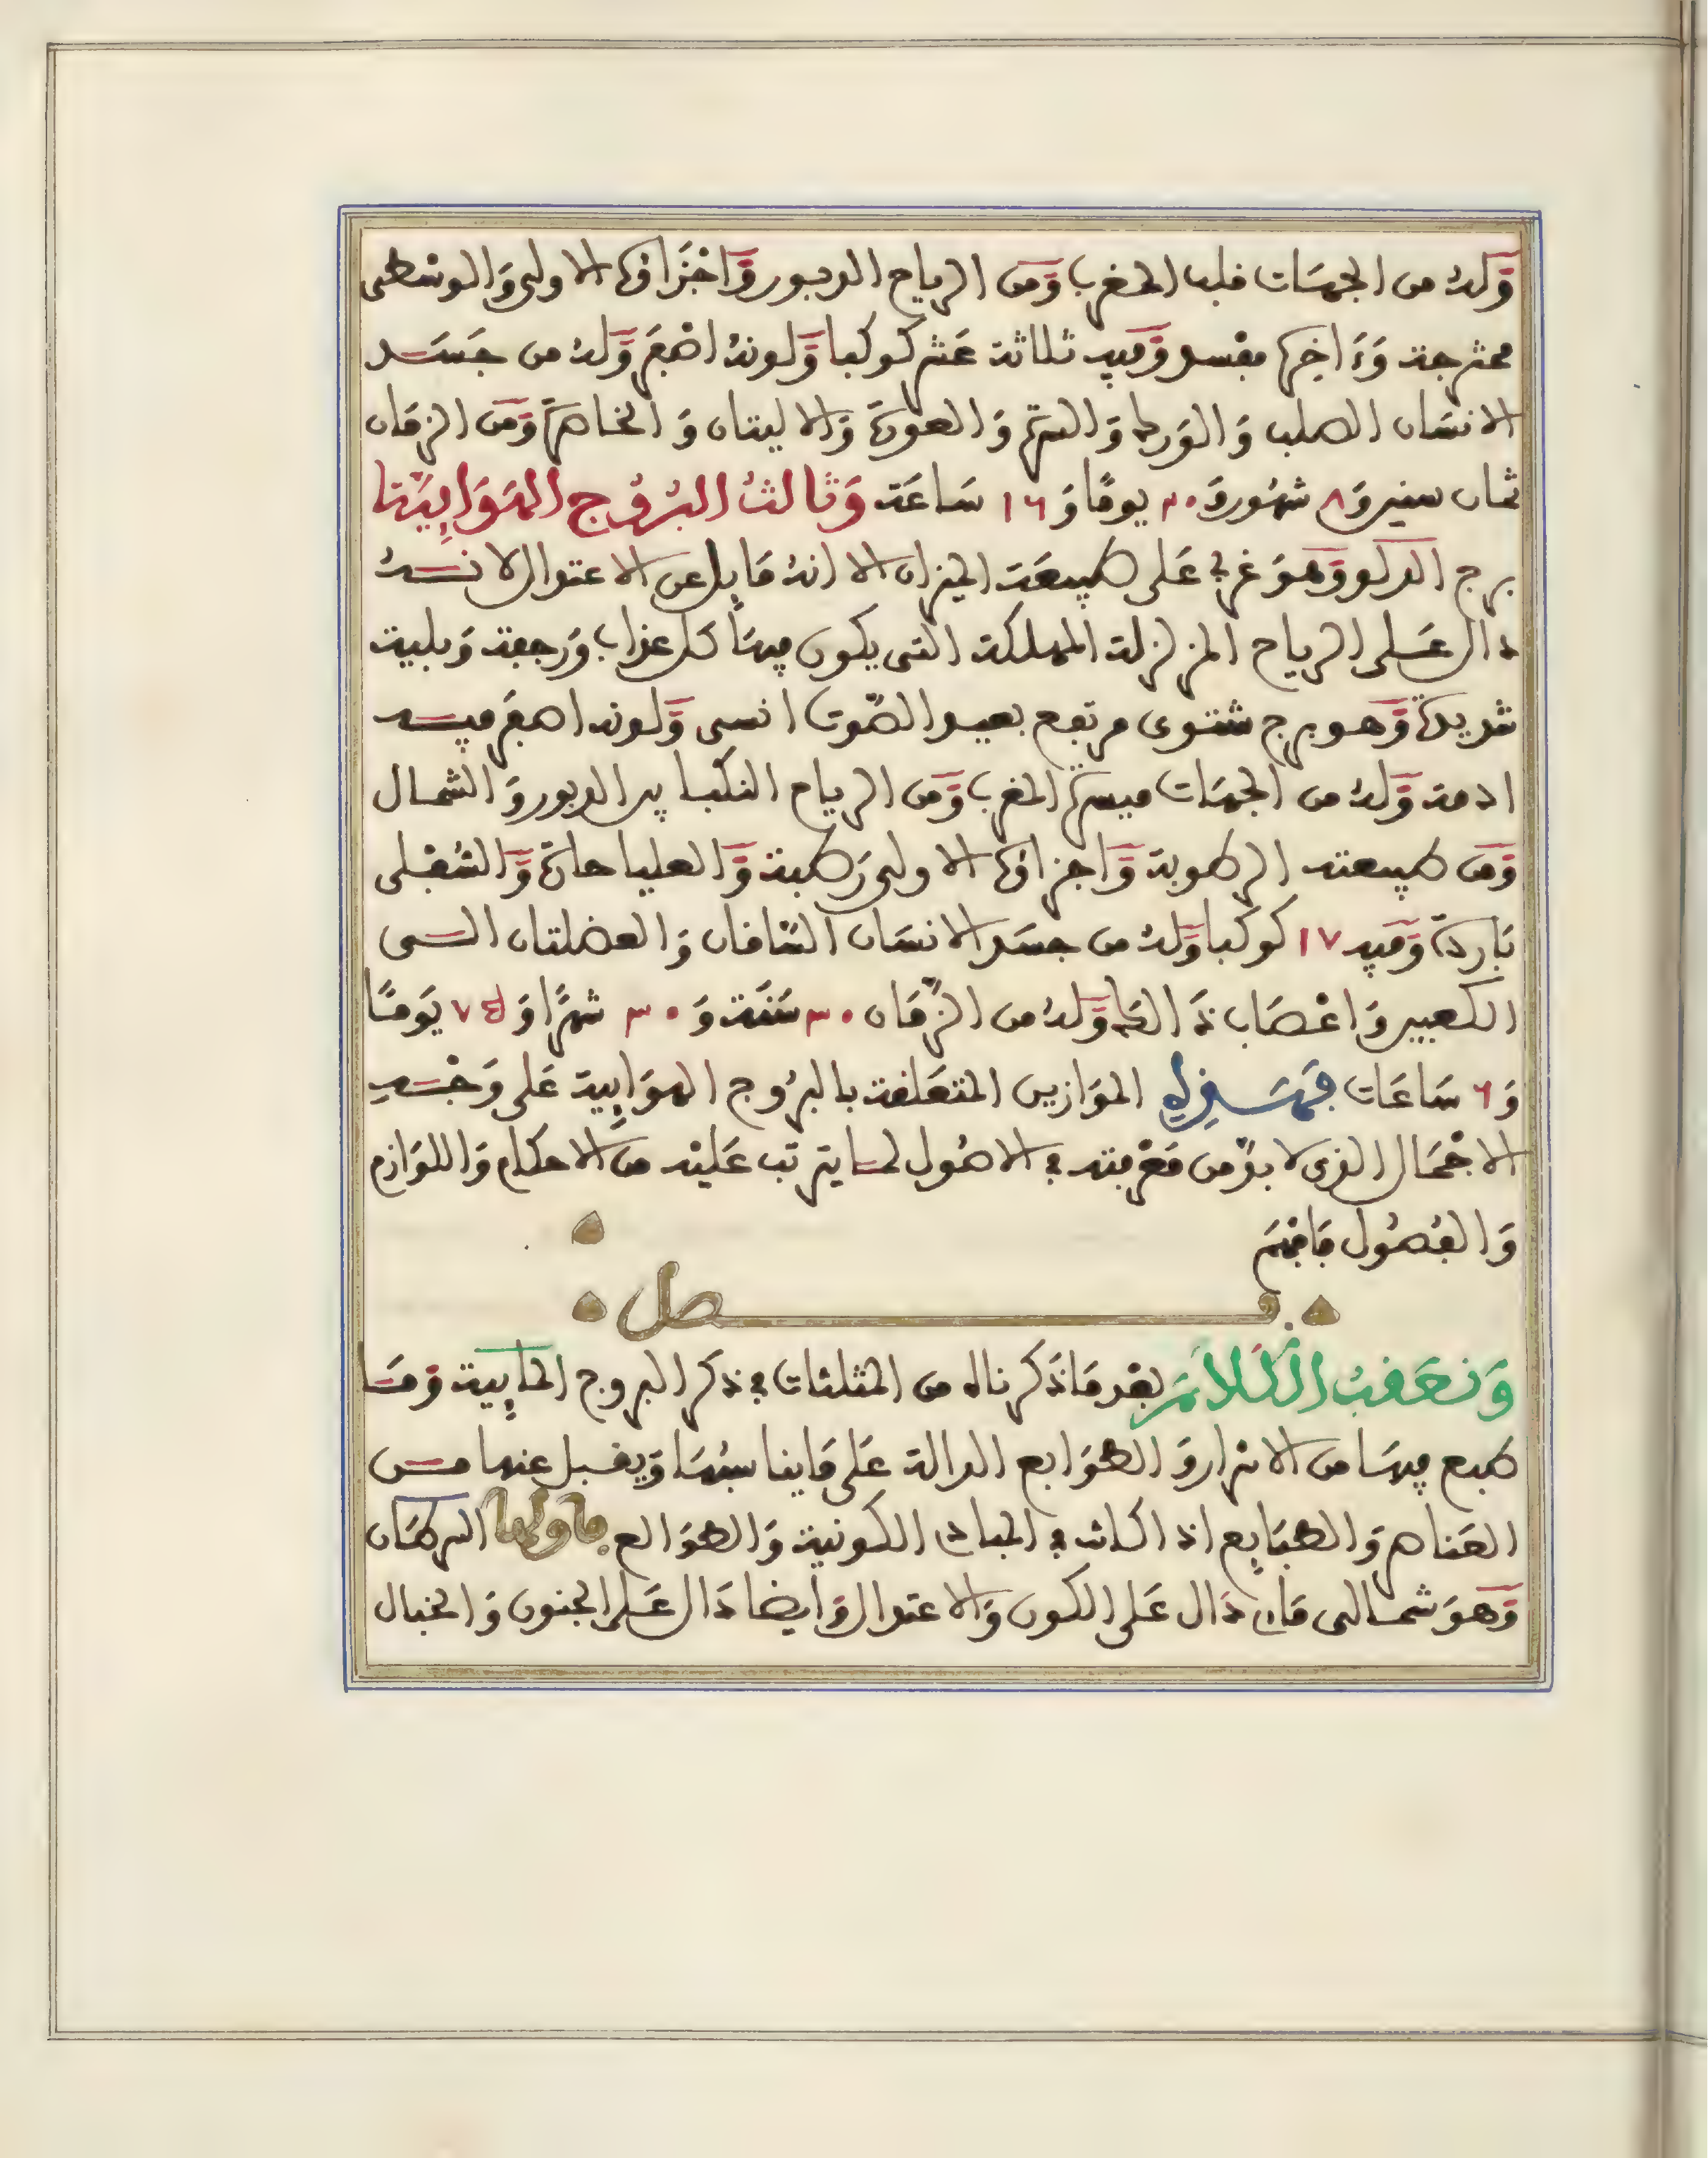 وَلهُ من الجهَات قلب المغرب وَمن الرياح الدبور وَاجْزَاؤها الاولى وَالوسْطى
ممتزجة وَءَاخِرها مفْسد وَفيه ثلاثة عَشر كوكبا وَلونهُ اصْفَر وَلهُ من جَسَـد
الانسَان الصلب وَالوَرك وَالسرة وَالعورَة وَالاليتان وَالخاصرَة وَمن الزمَان
ثمان سنين وَ٨ شهُور وَ٢٠ يومًا وَ١٦ سَاعَة وَثَالثُ البُرُوج الهَوَايِيَّة
برج الدلو وَهوَ غربي عَلى طبيعَة الميزان الا انهُ مَايِل عن الاعتدال لانــهُ
دال عَـلى الرياح المزلزلة المهلكة التى يكون فيهَا كل عذاب وَرجفة وَبلية
شديدَة وَهو برج شتوى مرتفع بعيد الصَّوت انسى وَلونه اصفَر فيــه
ادمة وَلهُ من الجهَات ميسرة المغرب وَمن الرياح النكْبا بين الدبور وَالشمـال
وَمن طبيعته الرطوبة وَاجزاؤها الاولى رَطبة وَالعليا حارة وَالسُفْلى
بَاردَة وَفيه ١٧ كوكبا وَلهُ من جسَد الانسَان السَّاقان وَالعضلتان الــى
الكعبين وَاعْصَاب ذَالك وَلهُ من الزَّمَان ٣٠ سَنَة وَ٣٠ شهرًا وَ٧٥ يَومًا
وَ٦ سَاعَات فهَــذِهِ الموَازين المتعَلقة بالبرُوج الهوَايِية عَلى وَجْــهِ
الاجْمَال الذى لا بدَّ من مَعْرفته في الاصُول لمــا يترتب عَليْه من الاحكام وَاللوَازم
وَالفُصُول فَافهَم
فصل
وَنعَقبُ الكَلاَمَ بعْد مَا ذَكرناه من المثلثات في ذكر البروج المَايِية وَمَــا
طبع فيهَا من الاسْرار وَالطوَابع الدالة عَلى مَا يناسبُهَا وَيقبـل عنها مــن
العَناصر وَالطبَايِع اذ اكانت في المبادى الكونية وَالطوَالع فاولها السرطَان
وَهوَ شمــالى مَاىِ دَال عَلى الكون وَالاعتدال وَايضا دَال عَلى الجنون وَالخبال